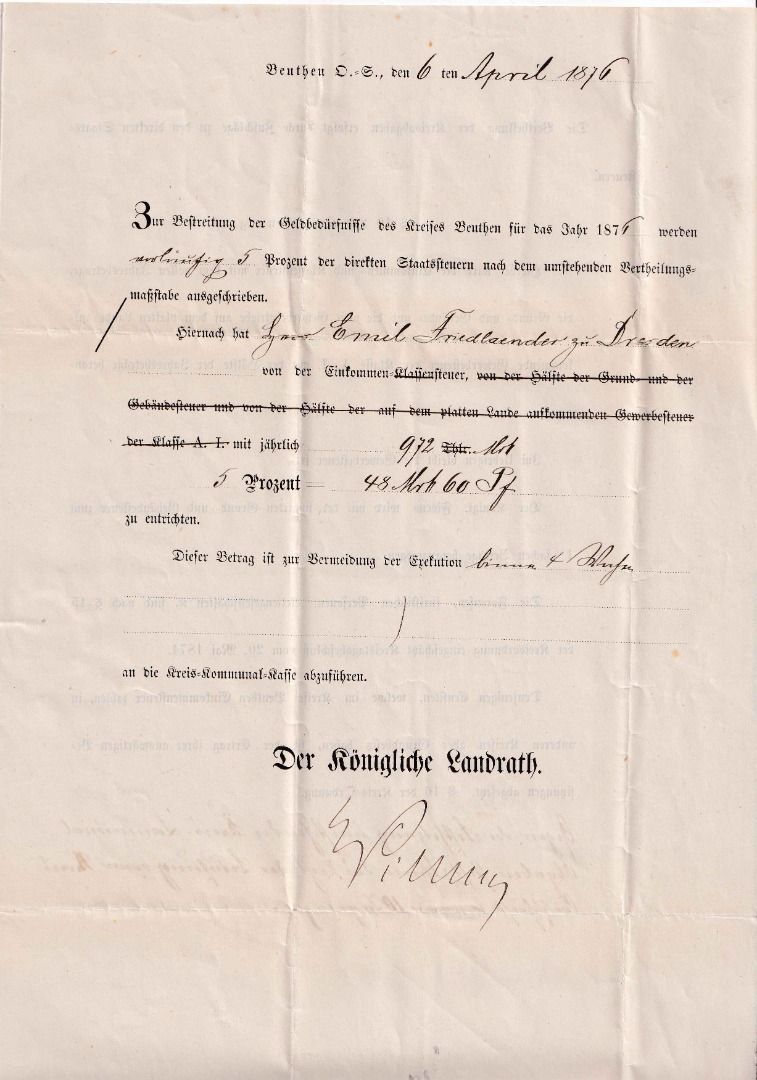 Beuthen O.-S., den 6 ten April 1876
Zur Bestreitung der Geldbedürfnisse des Kreises Beuthen für das Jahr 1876 werden
vorläufig 5 Prozent der direkten Staatssteuern nach dem umstehenden Vertheilungs-
maßstabe ausgeschrieben.
Hiernach hat Herr Emil Friedlaender zu Dresden
von der Einkommen-Klassensteuer, von der Hälfte der Grund- und der
Gebäudesteuer und von der Hälfte der auf dem platten Lande aufkommenden Gewerbesteuer
der Klasse A. I. mit jährlich 972 Thlr. Mrk
5 Prozent = 48 Mrk 60 Pf
zu entrichten.
Dieser Betrag ist zur Vermeidung der Exekution binnen 4 Wochen
an die Kreis-Kommunal-Kasse abzuführen.
Der Königliche Landrath.